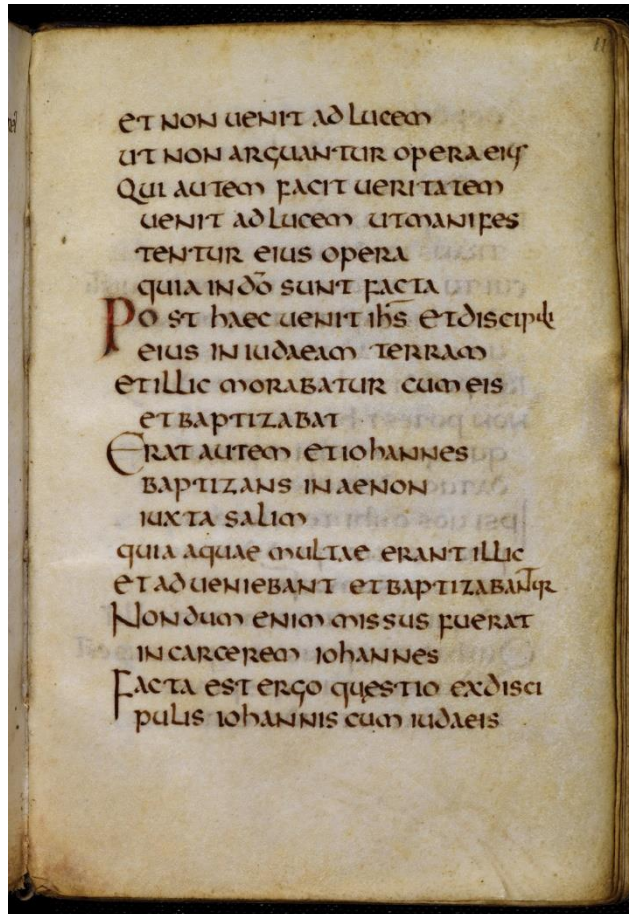 11
et non uenit ad lucem
ut non arguantur opera eius
Qui autem facit ueritatem
uenit ad lucem ut manifes
tentur eius opera
quia in do̅ sunt facta
Post haec uenit ih̅s et discipuli
eius in iudaeam terram
et illic morabatur cum eis
et baptizabat
Erat autem et iohannes
baptizans in aenon
iuxta salim
quia aquae multae erant illic
et adueniebant et baptizabantur
Nondum enim missus fuerat
in carcerem iohannes
Facta est ergo quęstio ex disci
pulis iohannis cum iudaeis